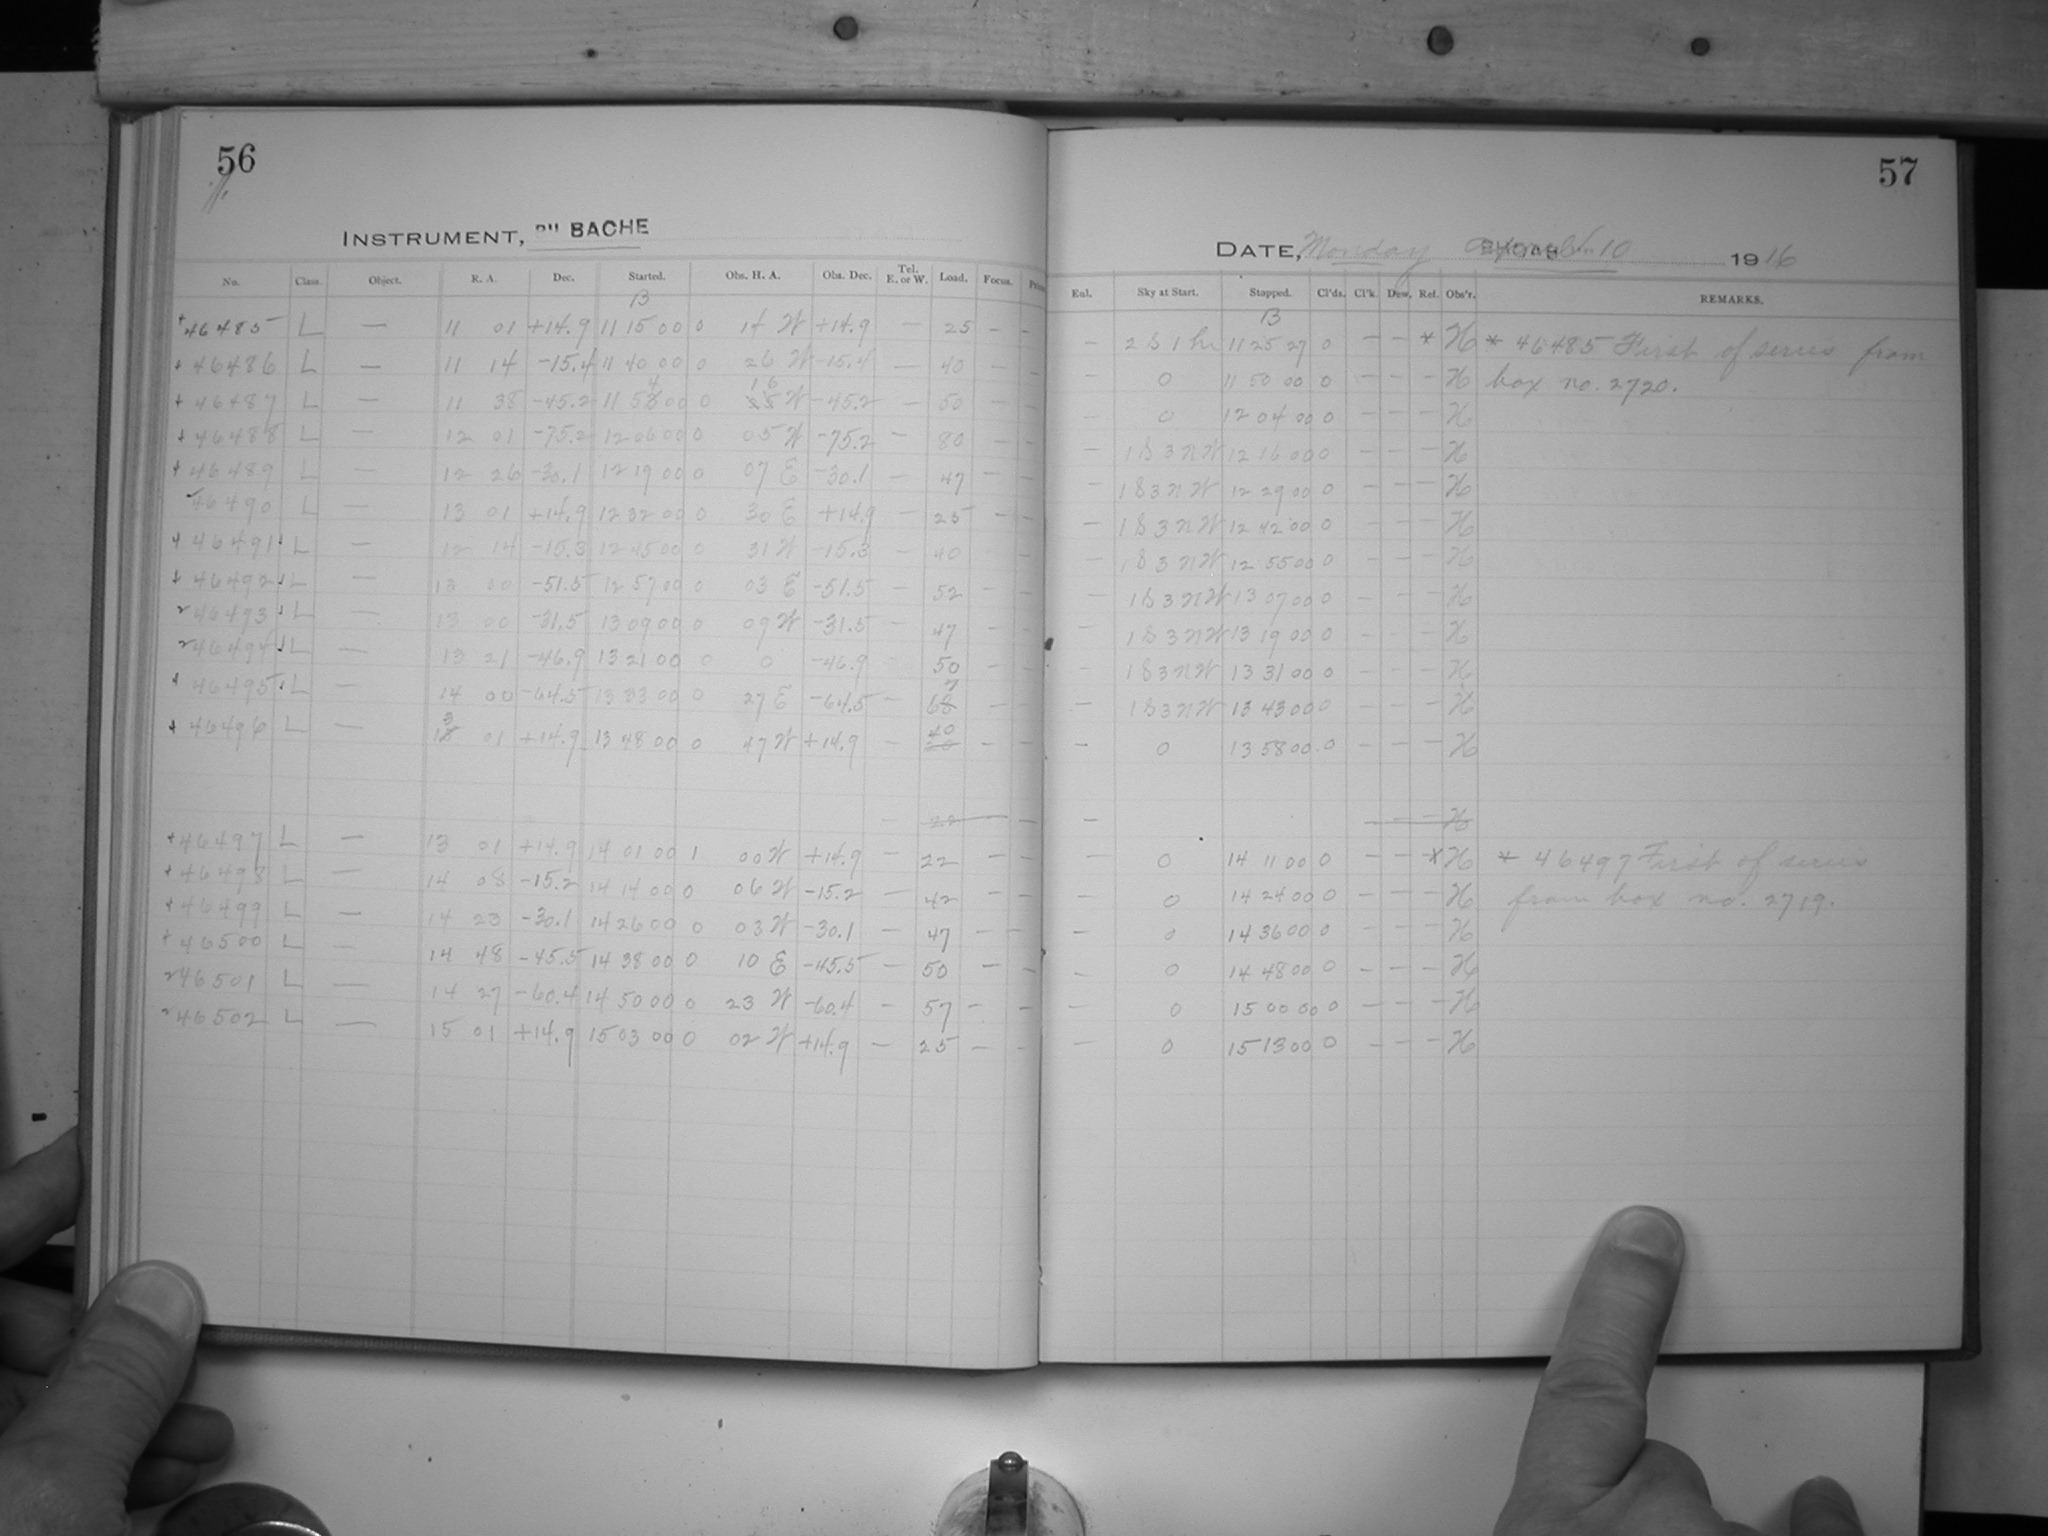 56
INSTRUMENT, BACHE
No. Class. Object. R. A. Dec. Started. Obs. H. A. Obs. Dec. Tel. E. or W. Load. Focus.
13
+46485 L — 11 01 +14.9 11 15 00 0 14 W +14.9 — 25 - -
+46486 L — 11 14 -15.4 11 40 00 0 26 W -15.4 — 40 - -
+46487 L — 11 38 -45.2 11 54 00 0 16 W -45.2 — 50 - -
+46488 L — 12 01 -75.2 12 06 00 0 05 W -75.2 — 80 - -
+46489 L — 12 26 -30.1 12 19 00 0 07 E -30.1 — 47 - -
46490 L — 13 01 +14.9 12 32 00 0 30 E +14.9 — 25 - -
+46491 L — 12 14 -15.3 12 45 00 0 31 W -15.3 — 40 - -
+46492 L — 13 00 -51.5 12 57 00 0 03 E -51.5 — 52 - -
46493 L — 13 00 -31.5 13 09 00 0 09 W -31.5 — 47 - -
46494 L — 13 21 -46.9 13 21 00 0 0 -46.9 — 50 - -
46495 L — 14 00 -64.5 13 33 00 0 27 E -64.5 — 67 - -
+46496 L — 13 01 +14.9 13 48 00 0 47 W +14.9 — 40 - -
+46497 L — 13 01 +14.9 14 01 00 1 00 W +14.9 — 22 - -
+46498 L — 14 08 -15.2 14 14 00 0 06 W -15.2 — 42 - -
+46499 L — 14 23 -30.1 14 26 00 0 03 W -30.1 — 47 - -
+46500 L — 14 48 -45.5 14 38 00 0 10 E -45.5 — 50 - -
46501 L — 14 27 -60.4 14 50 00 0 23 W -60.4 — 57 - -
46502 L — 15 01 +14.9 15 03 00 0 02 W +14.9 — 25 - -
57
DATE, Monday 10 1916
Eul. Sky at Start. Stopped. Cl'ds. Cl'k. Dew. Ref. Obs'r. REMARKS.
13
— 2 S 1 hr 11 25 27 0 - - * H * 46485 First of series from
— 0 11 50 00 0 - - - H box no. 2720.
— 0 12 04 00 0 - - - H
— 1 S 3 N W 12 16 00 0 - - - H
— 1 S 3 N W 12 29 00 0 - - - H
— 1 S 3 N W 12 42 00 0 - - - H
— 1 S 3 N W 12 55 00 0 - - - H
— 1 S 3 N W 13 07 00 0 - - - H
— 1 S 3 N W 13 19 00 0 - - - H
1 S 3 N W 13 31 00 0 - - - H
— 1 S 3 N W 13 43 00 0 - - - H
— 0 13 58 00 0 - - - H
— 0 14 11 00 0 - - * H * 46497 First of series
— 0 14 24 00 0 - - - H from box no. 2719.
— 0 14 36 00 0 - - - H
— 0 14 48 00 0 - - - H
— 0 15 00 00 0 - - - H
— 0 15 13 00 0 - - - H